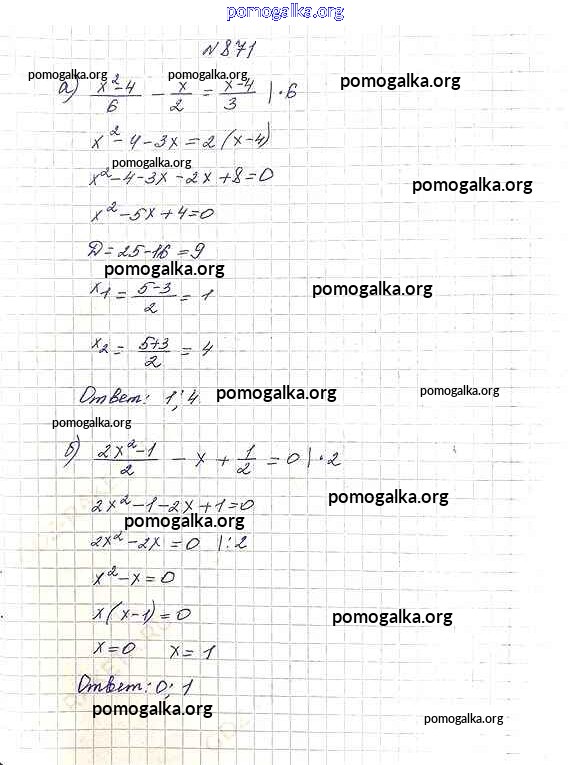 pomogalka.org
N871
pomogalka.org pomogalka.org
а) x²-4/6 - x/2 = x-4/3 |·6 pomogalka.org
x²-4-3x=2(x-4)
pomogalka.org
x²-4-3x-2x+8=0 pomogalka.org
x²-5x+4=0
D=25-16=9
pomogalka.org
x1 = 5-3/2 = 1 pomogalka.org
x2 = 5+3/2 = 4
Ответ: 1; 4 pomogalka.org pomogalka.org
pomogalka.org
б) 2x²-1/2 - x + 1/2 = 0 |·2
pomogalka.org
2x²-1-2x+1=0
pomogalka.org
2x²-2x=0 |:2
x²-x=0
x(x-1)=0 pomogalka.org
x=0 x=1
Ответ: 0; 1
pomogalka.org pomogalka.org